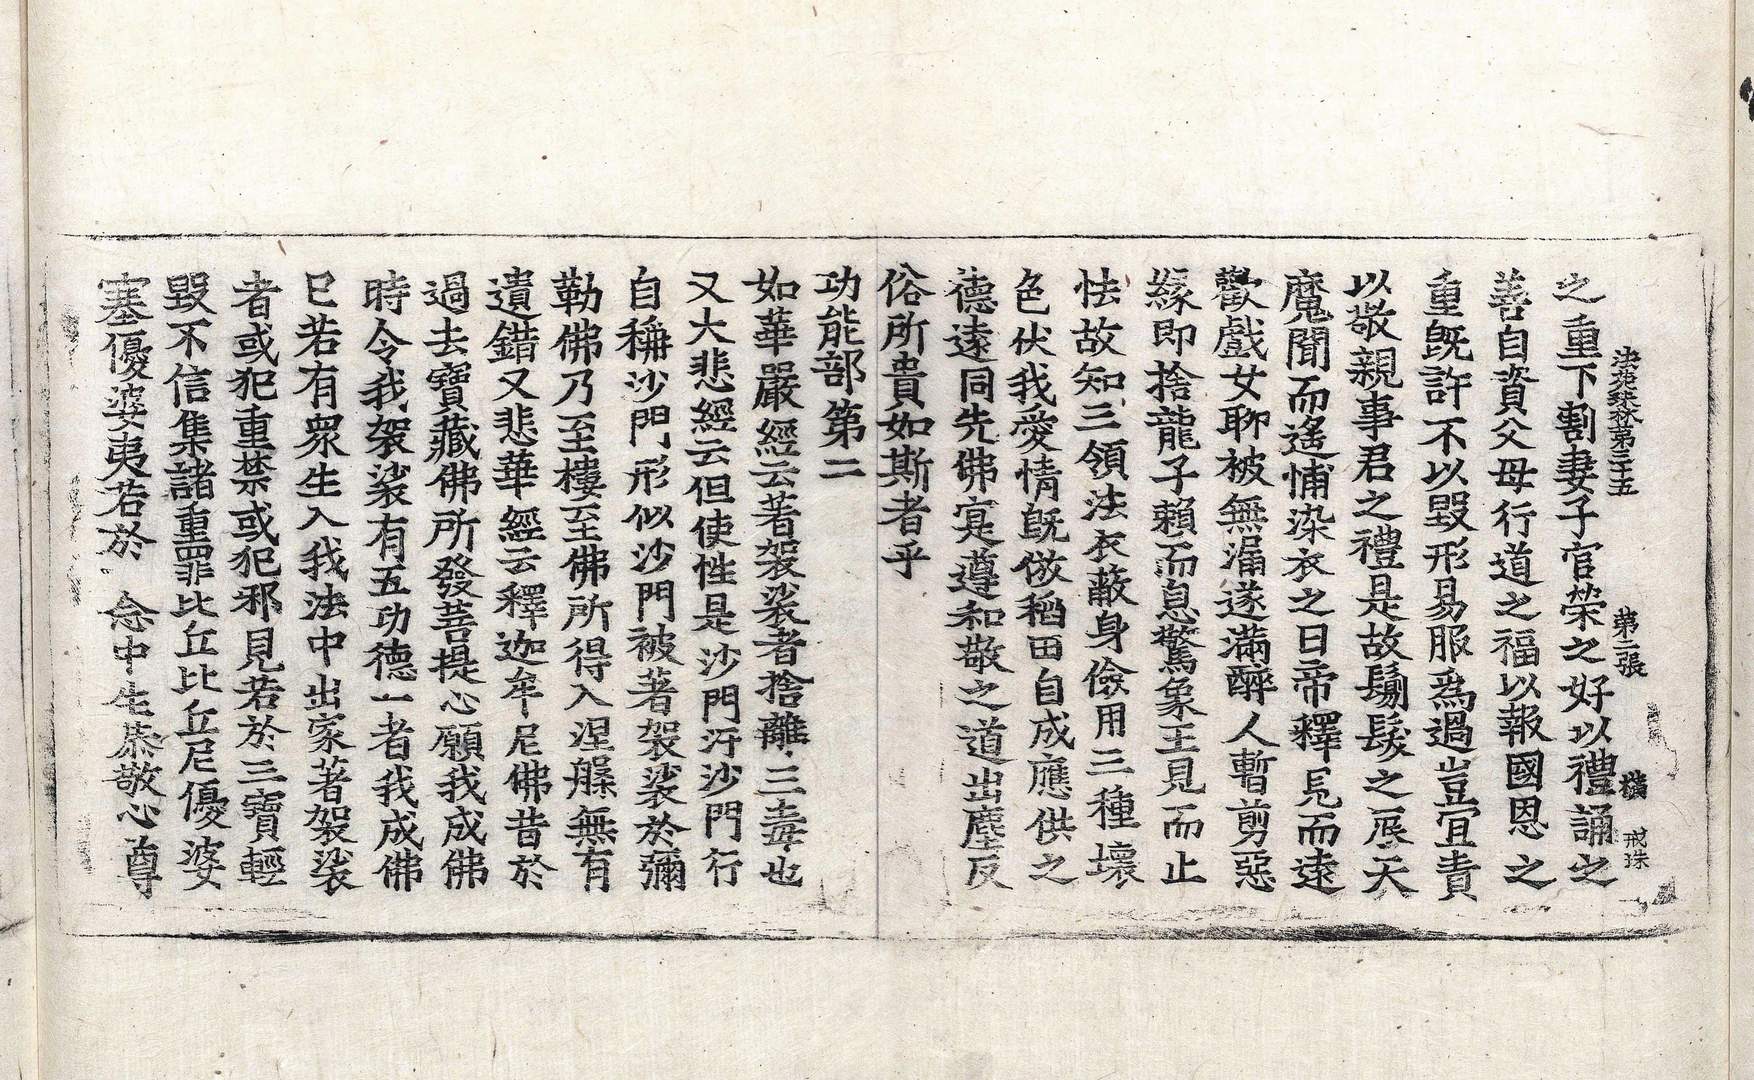 法苑珠林第三十五　第二張　橫　戒珠
之重下割妻子官榮之好以禮誦之
善自資父母行道之福以報國恩之
重旣許不以毀形易服爲過豈宜責
以敬親事君之禮是故剔髮之辰天
魔聞而遙怖染衣之日帝釋見而遠
歡戲女聊被無漏遂滿醉人暫剪惡
緣即捨龍子賴而息驚象王見而止
怯故知三領法衣蔽身儉用三種壞
色伏我愛情旣倣稻田自成應供之
德遠同先佛寔遵和敬之道出塵反
俗所貴如斯者乎
功能部第二
如華嚴經云著袈裟者捨離三毒也
又大悲經云但使性是沙門汙沙門行
自稱沙門形似沙門被著袈裟於彌
勒佛乃至樓至佛所得入涅槃無有
遺錯又悲華經云釋迦牟尼佛昔於
過去寶藏佛所發菩提心願我成佛
時令我袈裟有五功德一者我成佛
已若有衆生入我法中出家著袈裟
者或犯重禁或犯邪見若於三寶輕
毀不信集諸重罪比丘比丘尼優婆
塞優婆夷若於 念中生恭敬心尊